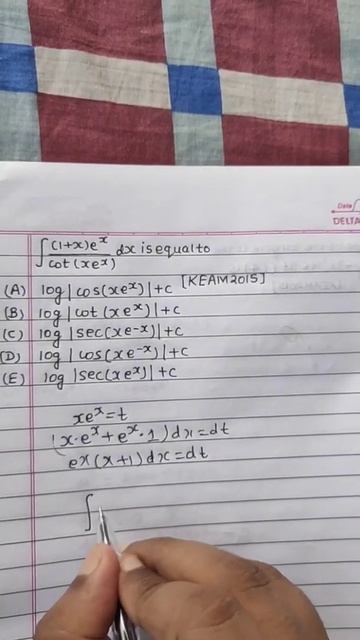 Date
DELTA
∫ (1+x)e^x / cot(xe^x) dx is equal to
[KEAM2015]
(A) log|cos(xe^x)|+c
(B) log|cot(xe^x)|+c
(C) log|sec(xe^-x)|+c
(D) log|cos(xe^-x)|+c
(E) log|sec(xe^x)|+c
xe^x=t
(x·e^x+e^x·1)dx=dt
e^x(x+1)dx=dt
∫